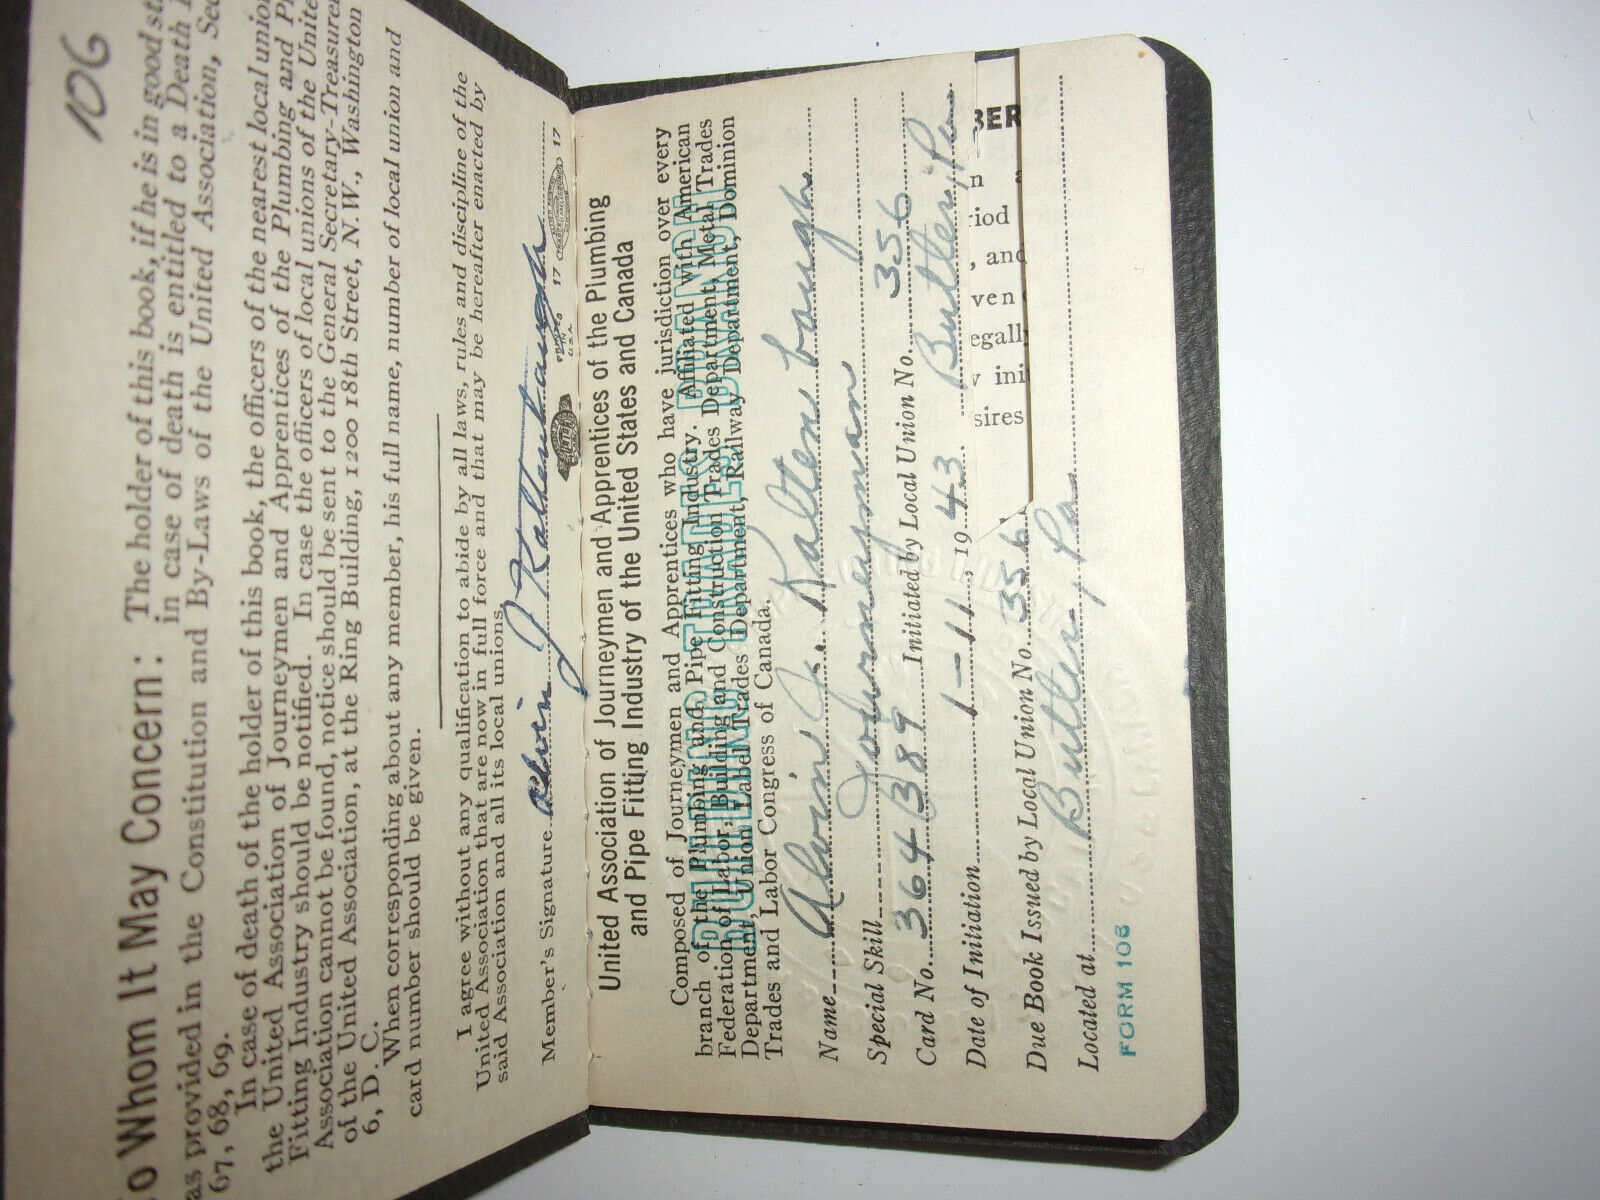 106
To Whom It May Concern: The holder of this book, if he is in good
in case of death is entitled to a Death
as provided in the Constitution and By-Laws of the United Association,
67, 68, 69.
In case of death of the holder of this book, the officers of the nearest local union
the United Association of Journeymen and Apprentices of the Plumbing and
Fitting Industry should be notified. In case the officers of local unions of the
Association cannot be found, notice should be sent to the General Secretary-Treasurer
of the United Association, at the Ring Building, 1200 18th Street, N.W., Washington
6, D. C.
When corresponding about any member, his full name, number of local union and
card number should be given.
I agree without any qualification to abide by all laws, rules and discipline of the
United Association that are now in full force and that may be hereafter enacted by
said Association and all its local unions.
Member's Signature Alvin J Kaltenbaugh
17 17
PRINTED IN U.S.A.
United Association of Journeymen and Apprentices of the Plumbing
and Pipe Fitting Industry of the United States and Canada
BUILDING TRADES BRANCH
Composed of Journeymen and Apprentices who have jurisdiction over every
branch of the Plumbing and Pipe Fitting Industry. Affiliated with American
Federation of Labor, Building and Construction Trades Department, Metal Trades
Department, Union Label Trades Department, Railway Department, Dominion
Trades and Labor Congress of Canada.
Name Alvin J. Kaltenbaugh
Special Skill Journeyman
Card No. 364B89 Initiated by Local Union No. 356
Date of Initiation 1-11, 1943 Butler, Pa
Due Book Issued by Local Union No. 356
Located at Butler, Pa
FORM 106
BER
n a
riod
, and
ven
egall
v ini
sires